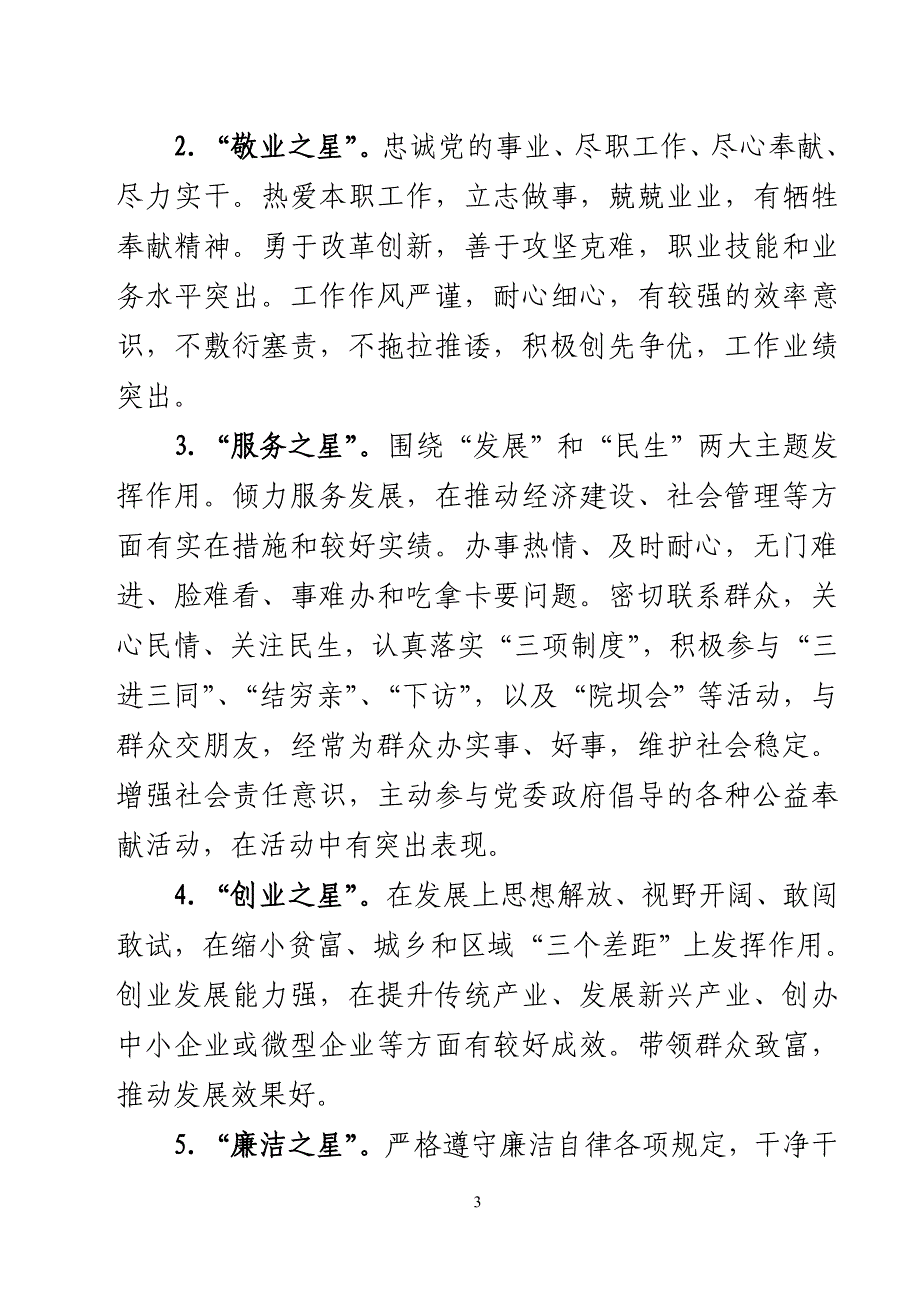 2. “敬业之星”。忠诚党的事业、尽职工作、尽心奉献、
尽力实干。热爱本职工作，立志做事，兢兢业业，有牺牲
奉献精神。勇于改革创新，善于攻坚克难，职业技能和业
务水平突出。工作作风严谨，耐心细心，有较强的效率意
识，不敷衍塞责，不拖拉推诿，积极创先争优，工作业绩
突出。
3. “服务之星”。围绕“发展”和“民生”两大主题发
挥作用。倾力服务发展，在推动经济建设、社会管理等方
面有实在措施和较好实绩。办事热情、及时耐心，无门难
进、脸难看、事难办和吃拿卡要问题。密切联系群众，关
心民情、关注民生，认真落实“三项制度”，积极参与“三
进三同”、“结穷亲”、“下访”，以及“院坝会”等活动，与
群众交朋友，经常为群众办实事、好事，维护社会稳定。
增强社会责任意识，主动参与党委政府倡导的各种公益奉
献活动，在活动中有突出表现。
4. “创业之星”。在发展上思想解放、视野开阔、敢闯
敢试，在缩小贫富、城乡和区域“三个差距”上发挥作用。
创业发展能力强，在提升传统产业、发展新兴产业、创办
中小企业或微型企业等方面有较好成效。带领群众致富，
推动发展效果好。
5. “廉洁之星”。严格遵守廉洁自律各项规定，干净干
3